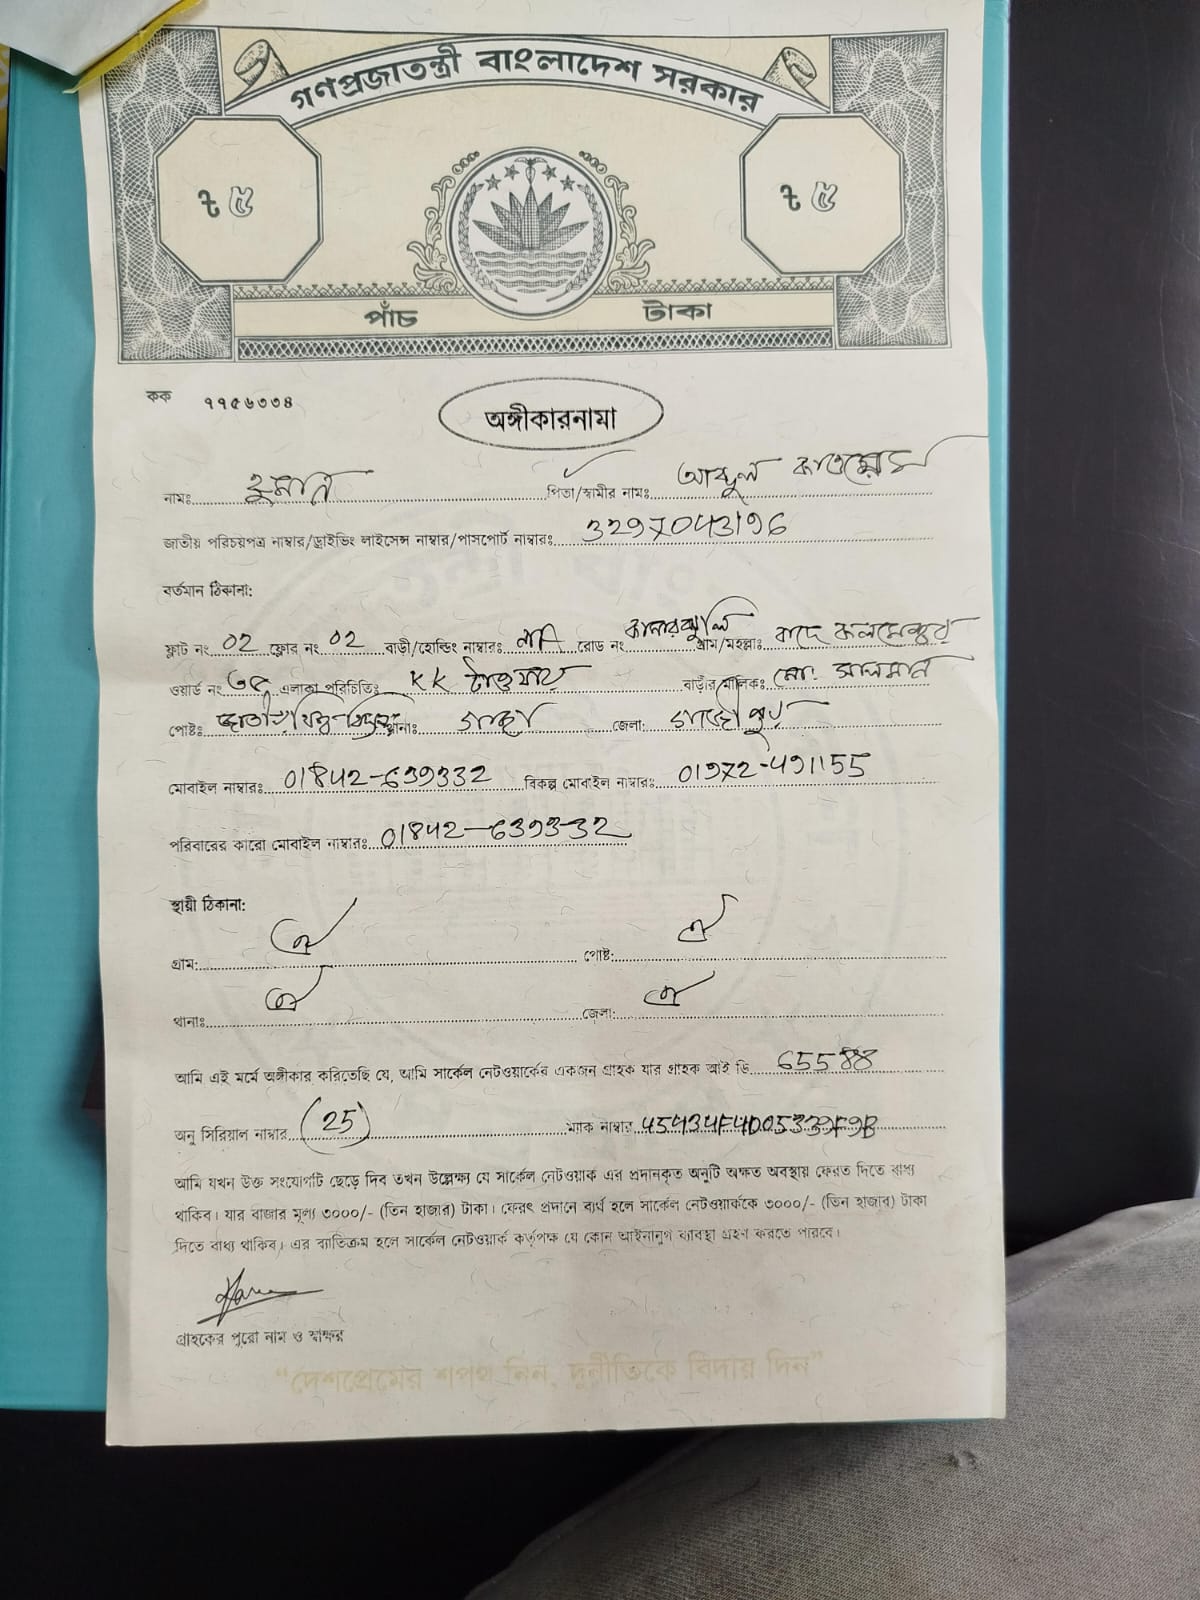 গণপ্রজাতন্ত্রী বাংলাদেশ সরকার
৳ ৫ ৳ ৫
পাঁচ টাকা
কক ৭৭৫৬৩৩৪
অঙ্গীকারনামা
নামঃ পিতা/স্বামীর নামঃ আব্দুল
জাতীয় পরিচয়পত্র নাম্বার/ড্রাইভিং লাইসেন্স নাম্বার/পাসপোর্ট নাম্বারঃ
বর্তমান ঠিকানা:
ফ্লাট নং 02 ফ্লোর নং 02 বাড়ী/হোল্ডিং নাম্বারঃ রোড নং গ্রাম/মহল্লাঃ বাদে কলমেশ্বর
ওয়ার্ড নং ৩৫ এলাকা পরিচিতিঃ KK টাওয়ার বাড়ীর মালিকঃ মো: সালমান
পোষ্টঃ থানাঃ গাছা জেলা: গাজীপুর
মোবাইল নাম্বারঃ 01842-639332 বিকল্প মোবাইল নাম্বারঃ
পরিবারের কারো মোবাইল নাম্বারঃ 01842-639332
স্থায়ী ঠিকানা:
গ্রাম: ঐ পোষ্ট: ঐ
থানাঃ ঐ জেলা: ঐ
আমি এই মর্মে অঙ্গীকার করিতেছি যে, আমি সার্কেল নেটওয়ার্কের একজন গ্রাহক যার গ্রাহক আই ডি 65588
অনু সিরিয়াল নাম্বার (25) ম্যাক নাম্বার
আমি যখন উক্ত সংযোগটি ছেড়ে দিব তখন উল্লেক্ষ্য যে সার্কেল নেটওয়াক এর প্রদানকৃত অনুটি অক্ষত অবস্থায় ফেরত দিতে বাধ্য
থাকিব। যার বাজার মূল্য ৩০০০/- (তিন হাজার) টাকা। ফেরৎ প্রদানে ব্যর্থ হলে সার্কেল নেটওয়ার্ককে ৩০০০/- (তিন হাজার) টাকা
দিতে বাধ্য থাকিব। এর ব্যতিক্রম হলে সার্কেল নেটওয়ার্ক কর্তৃপক্ষ যে কোন আইনানুগ ব্যাবস্থা গ্রহণ করতে পারবে।
গ্রাহকের পুরো নাম ও স্বাক্ষর
“দেশপ্রেমের শপথ নিন, দুর্নীতিকে বিদায় দিন”